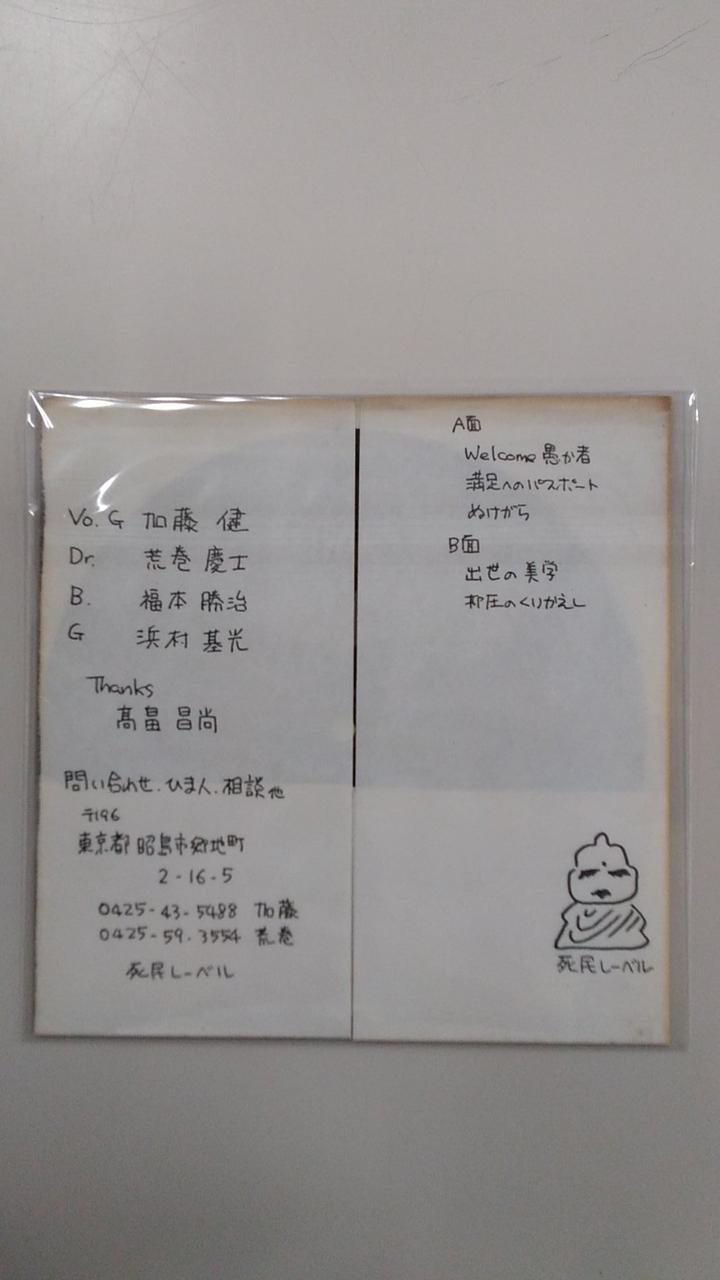 Vo. G 加藤 健
Dr. 荒巻 慶士
B. 福本 勝治
G 浜村 基光
Thanks
髙畠 昌尚
問い合わせ.ひまん.相談他
〒196
東京都 昭島市郷地町
2-16-5
0425-43-5488 加藤
0425-59-3554 荒巻
死民レーベル
A面
Welcome 愚か者
満足へのパスポート
ぬけがら
B面
出世の美学
抑圧のくりかえし
死民レーベル